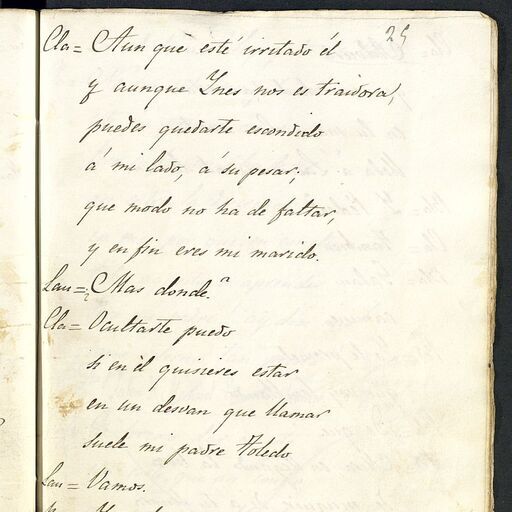 25
Cla= Aun que esté irritado él
y aunque Ynes nos es traidora,
puedes quedarte escondido
á mi lado, á su pesar;
que modo no ha de faltar,
y en fin eres mi marido.
Lau= ¿Mas donde?
Cla= Ocultarte puedo
si en él quisieres estar
en un desvan que llamar
suele mi padre Toledo
Lau= Vamos.